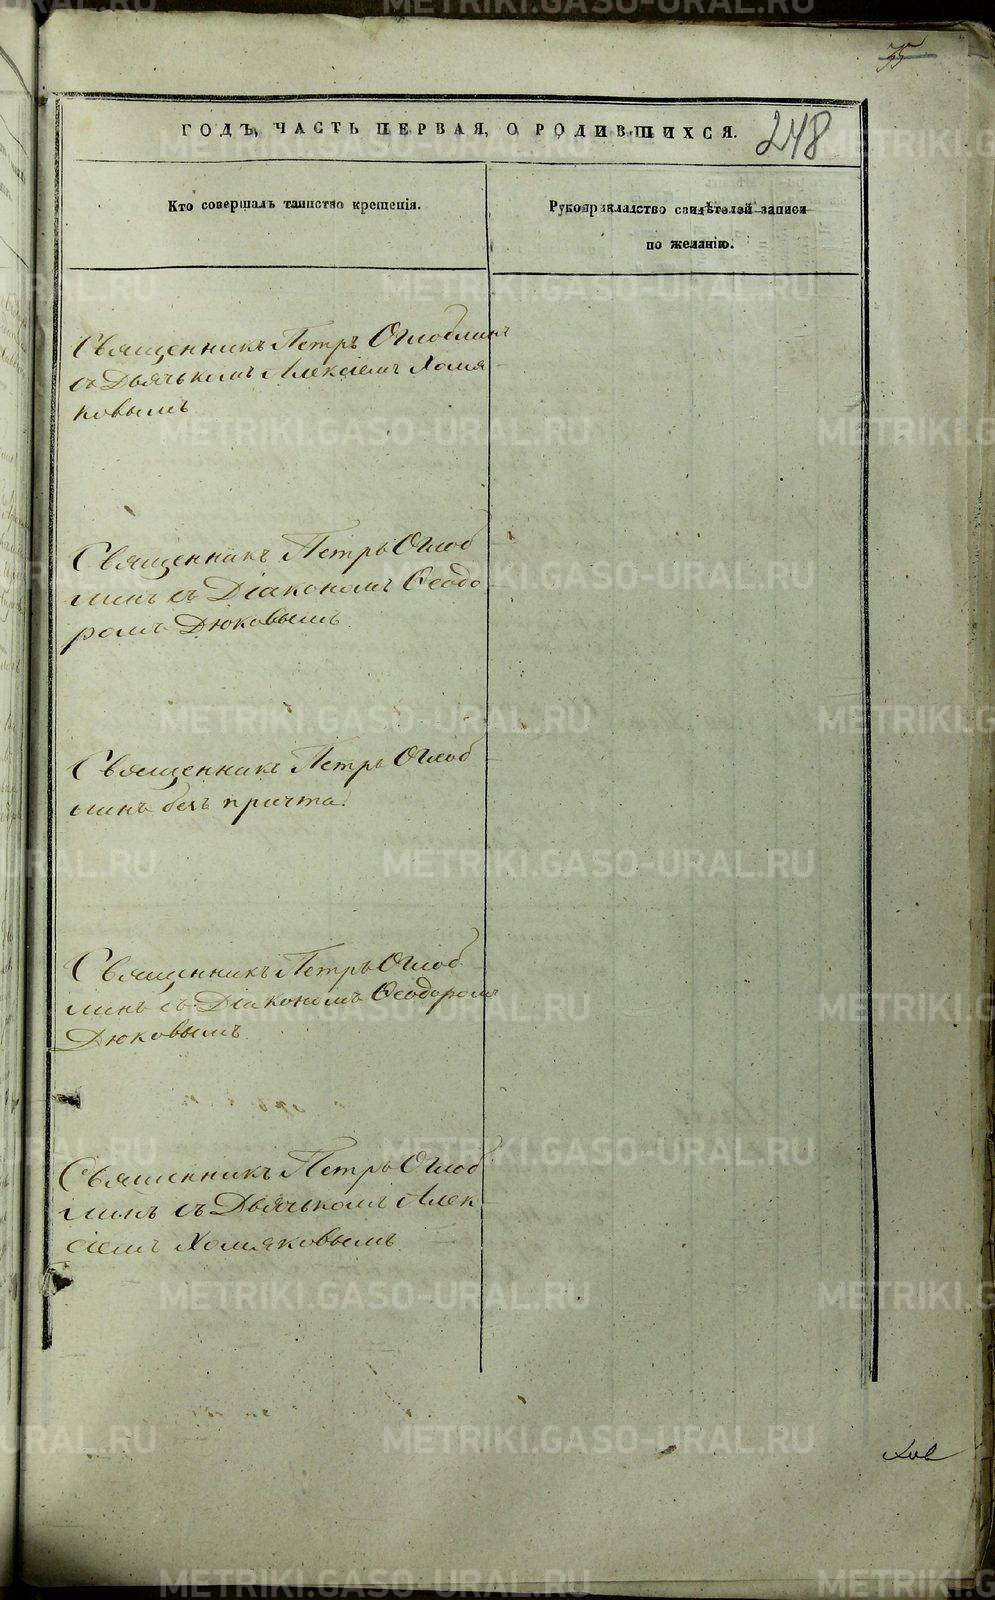 248
ГОДЪ, ЧАСТЬ ПЕРВАЯ, О РОДИВШИХСЯ.
Кто совершалъ таинство крещенія.
Рукоприкладство свидѣтелей записи
по желанію.
Священникъ Петръ Оглоблинъ
съ Дьячькомъ Алексіемъ Холмя
ковымъ
Священникъ Петръ Оглоб
линъ съ Діакономъ Ѳеодо
ромъ Дюковымъ
Священникъ Петръ Оглоб
линъ безъ причта.
Священникъ Петръ Оглоб
линъ съ Діакономъ Ѳеодоромъ
Дюковымъ
Священникъ Петръ Оглоб
линъ съ Дьячькомъ Алек-
сіемъ Холмяковымъ
METRIKI.GASO-URAL.RU